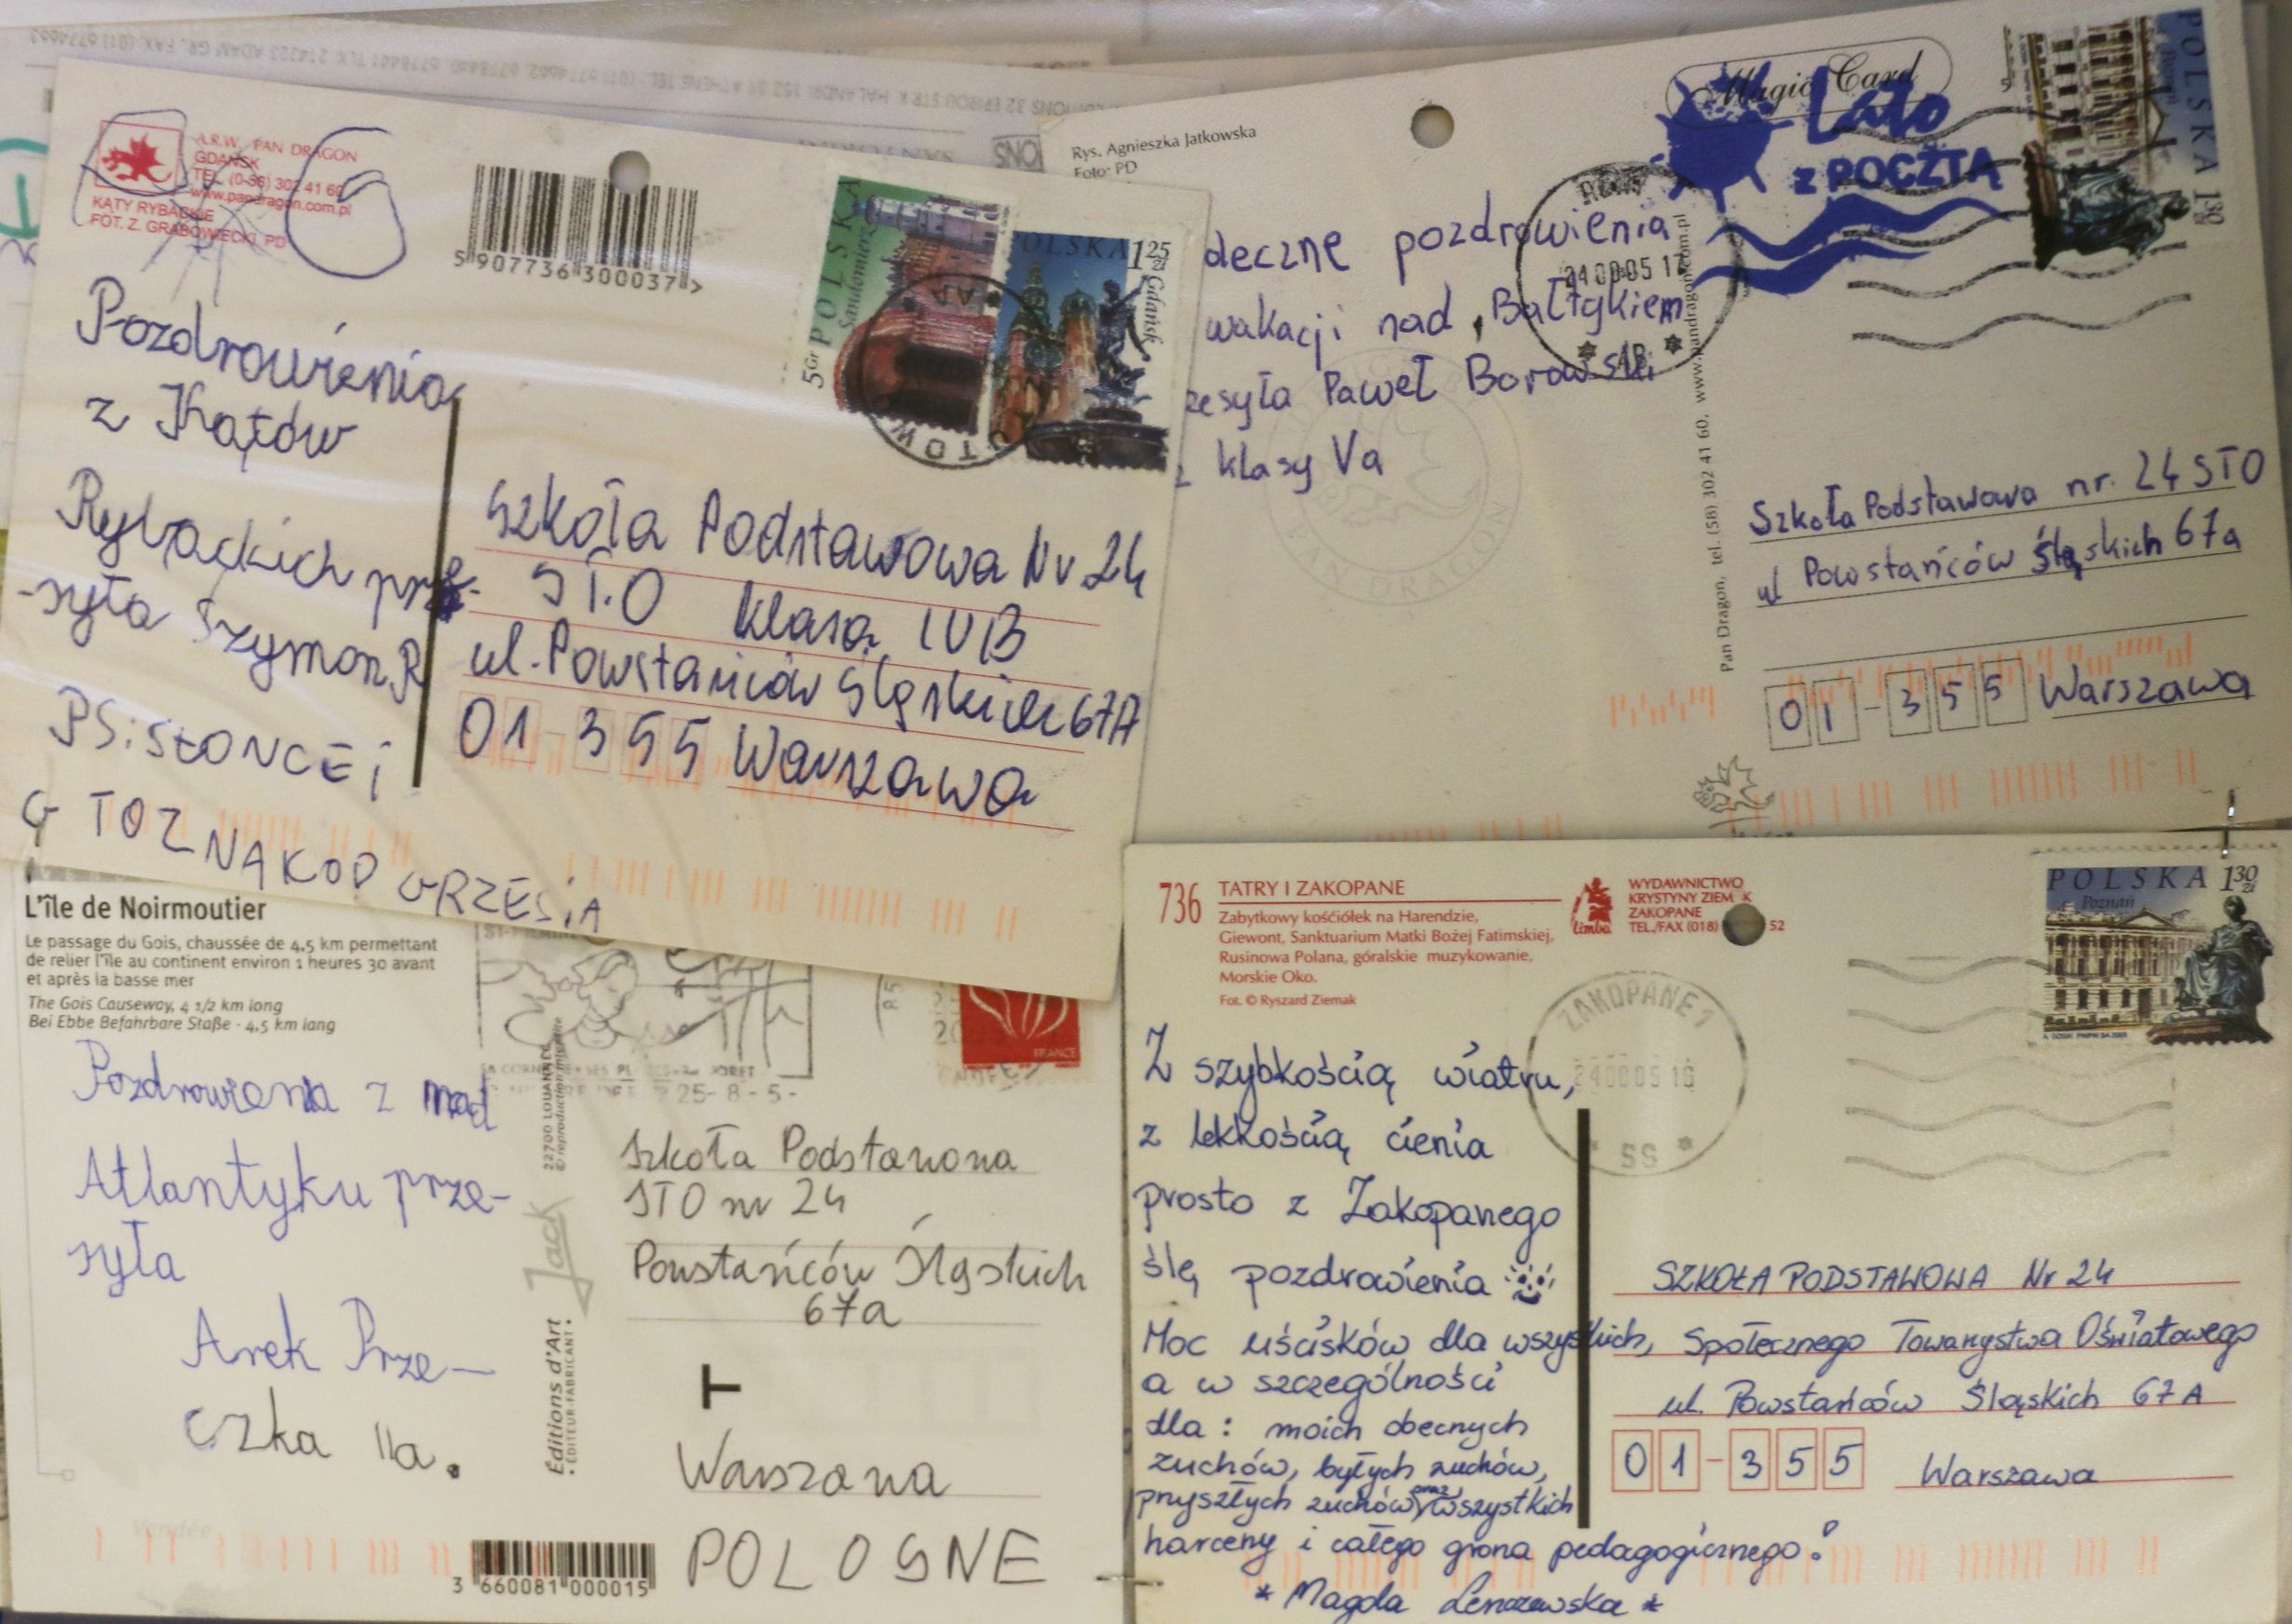 A.R.W. PAN DRAGON
GDAŃSK
TEL. (0-58) 302 41 60
www.pandragon.com.pl
KĄTY RYBACKIE
FOT. Z. GRABOWIECKI, PD
5 907736 300037 >
POLSKA
Sandomierz
5 Gr
POLSKA 1 25 zł
Gdańsk
Pozdrowienia
z Kątów
Rybackich prze-
-syła Szymon.R
PS: SŁOŃCE i
G TO ZNAK OD GRZESiA
Szkoła Podstawowa Nr 24
STO klasa IVB
ul. Powstańców Śląskich 67A
01-355 Warszawa
Rys. Agnieszka Jatkowska
Foto: PD
Magic Card
Lato
z POCZTĄ
POLSKA 1 30 zł
Poznań
deczne pozdrowienia
wakacji nad Bałtykiem
zesyła Paweł Borowski
z klasy Va
PAN DRAGON
Pan Dragon, tel. (58) 302 41 60, www.pandragon.com.pl
Szkoła Podstawowa nr. 24 STO
ul Powstańców Śląskich 67a
01-355 Warszawa
L'île de Noirmoutier
Le passage du Gois, chaussée de 4,5 km permettant
de relier l'île au continent environ 1 heures 30 avant
et après la basse mer
The Gois Causeway, 4 1/2 km long
Bei Ebbe Befahrbare Staße - 4,5 km lang
25-8-5-
FRANCE
Pozdrowienia z nad
Atlantyku prze-
syła
Arek Prze-
czka IIa.
22700 LOUANNEC
© reproduction interdite
Jack
Éditions d'Art
• ÉDITEUR-FABRICANT •
Szkoła Podstawowa
STO nr 24
Powstańców Śląskich
67a
T
Warszawa
POLOGNE
Vendée
3 660081 000015
736 TATRY I ZAKOPANE
Zabytkowy kościółek na Harendzie,
Giewont, Sanktuarium Matki Bożej Fatimskiej,
Rusinowa Polana, góralskie muzykowanie,
Morskie Oko.
Fot. © Ryszard Ziemak
limba
WYDAWNICTWO
KRYSTYNY ZIEM K
ZAKOPANE
TEL./FAX (018) 52
ZAKOPANE 1
POLSKA 1 30 zł
Poznań
Z szybkością wiatru,
z lekkością cienia
prosto z Zakopanego
ślę pozdrowienia
Moc uścisków dla wszystkich,
a w szczególności
dla: moich obecnych
zuchów, byłych zuchów,
przyszłych zuchów oraz wszystkich
harcerzy i całego grona pedagogicznego!
* Magda Lenczewska *
SZKOŁA PODSTAWOWA Nr 24
Społecznego Towarzystwa Oświatowego
ul. Powstańców Śląskich 67A
01-355 Warszawa